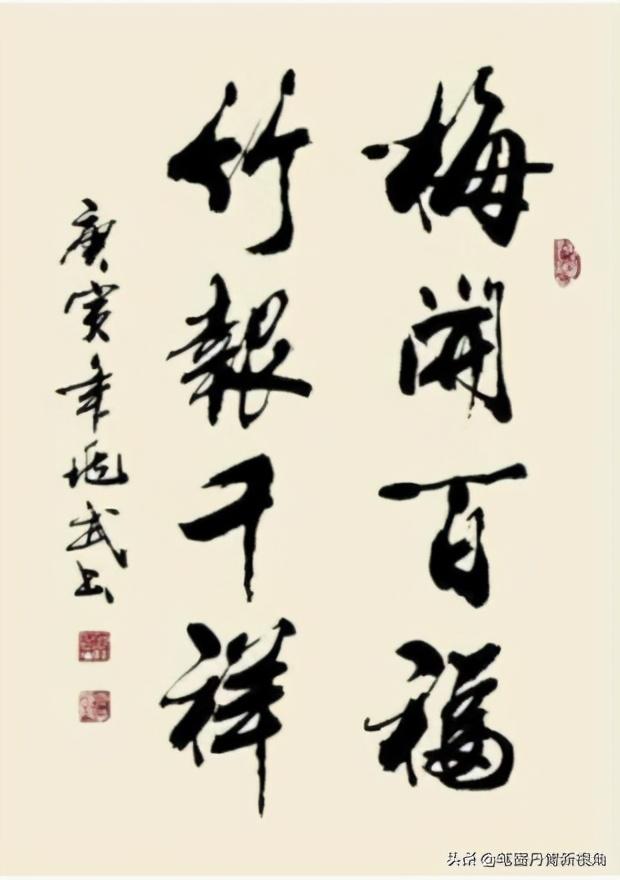 梅開百福
竹報千祥
庚寅年 武书
头条 @笔墨丹青新视角